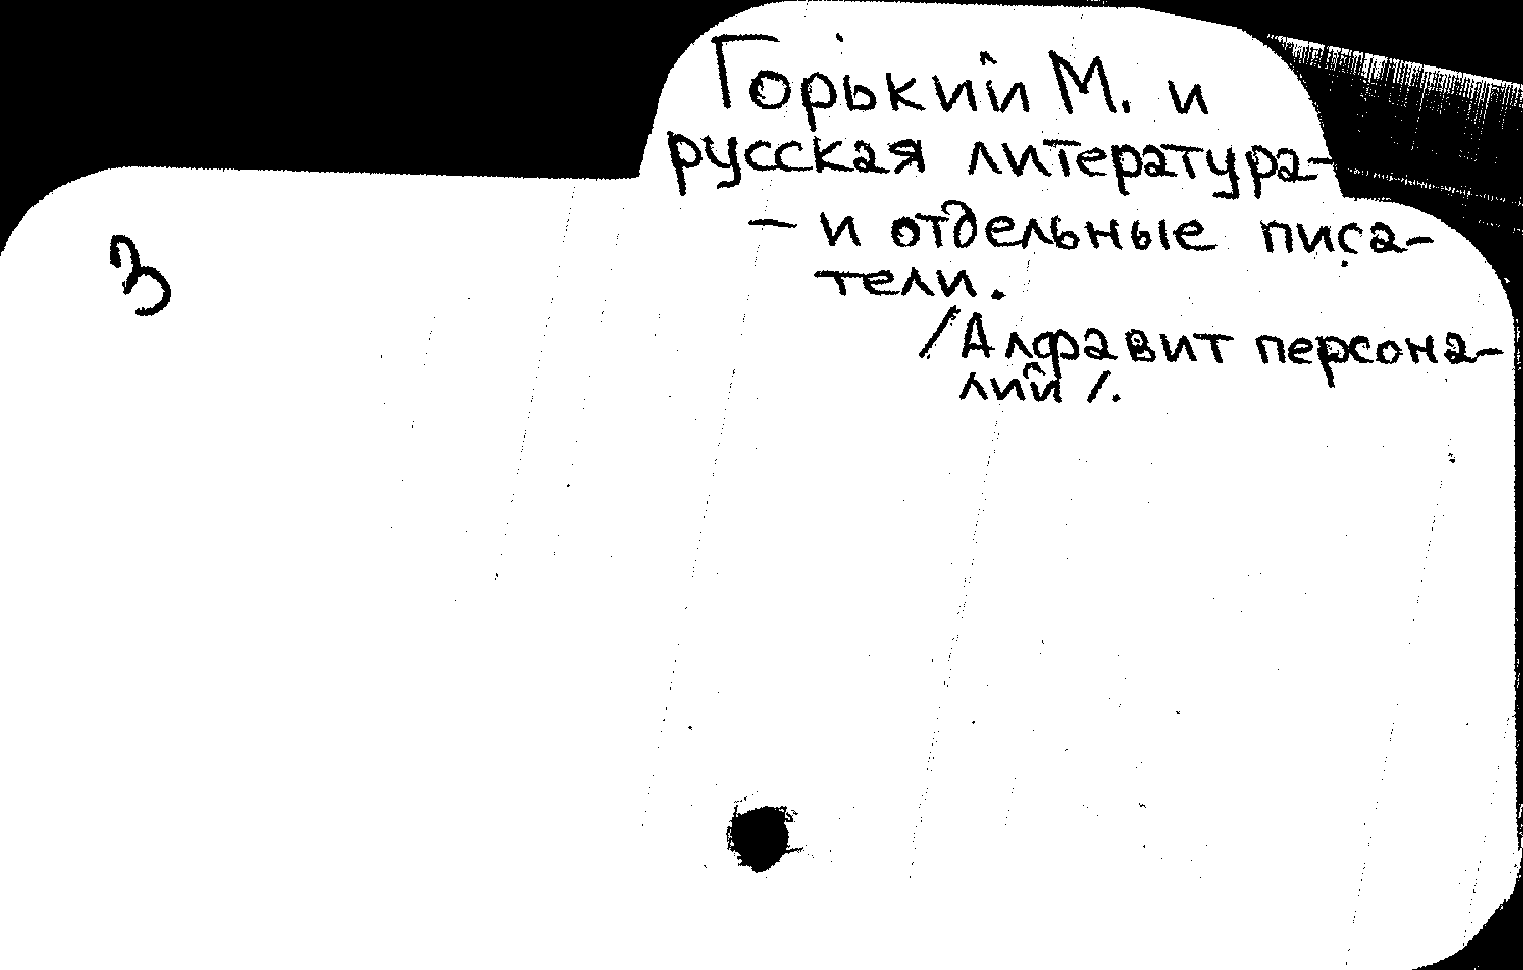 Горький М. и
русская литература-
- и отдельные писа-
тели.
/Алфавит персона-
лий/.
З